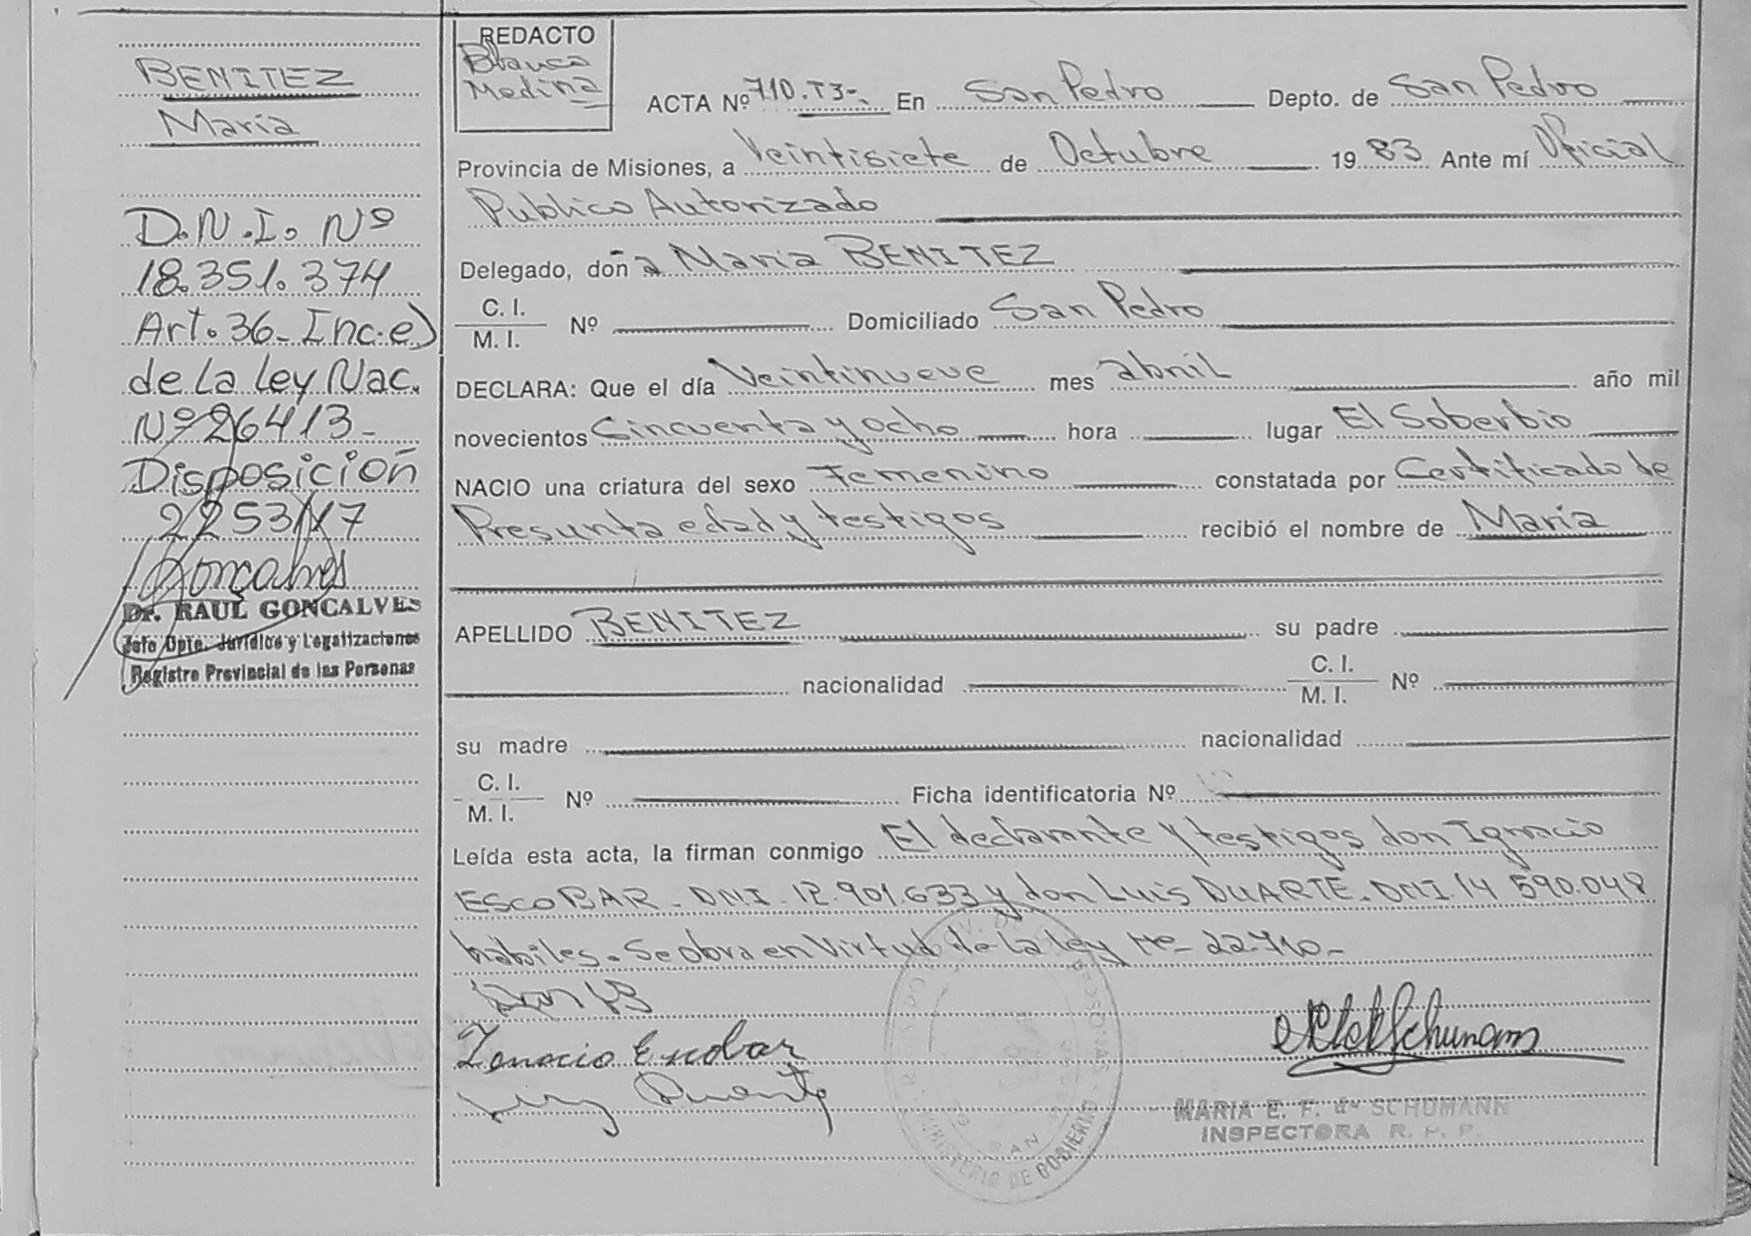 BENITEZ
María
D.N.I. Nº
18.351.374
Art. 36- Inc. e)
de la Ley Nac.
Nº 26413-
Disposición
2253/17
Dr. RAUL GONCALVES
Jefe Dpto. Jurídico y Legalizaciones
Registro Provincial de las Personas
REDACTO
Blanca
Medina
ACTA Nº 710.T3-. En San Pedro Depto. de San Pedro
Provincia de Misiones, a Veintisiete de Octubre 1983 Ante mí Oficial
Publico Autorizado
Delegado, don a Maria BENITEZ
C. I.
M. I. Nº Domiciliado San Pedro
DECLARA: Que el día Veintinueve mes abril año mil
novecientos Cincuenta y ocho hora lugar El Soberbio
NACIO una criatura del sexo Femenino constatada por Certificado de
Presunta edad y testigos recibió el nombre de María
APELLIDO BENITEZ su padre
nacionalidad C. I. M. I. Nº
su madre nacionalidad
C. I.
M. I. Nº Ficha identificatoria Nº
Leída esta acta, la firman conmigo El declarante y testigos don Ignacio
ESCOBAR - DNI. 12.901.633 y don Luis DUARTE. DNI. 14 590.048
habiles. Se obra en Virtud de la ley Nº- 22.710-
Ignacio Escobar
MARIA E. F. de SCHUMANN
INSPECTORA R. P. P.
MINISTERIO DE GOBIERNO